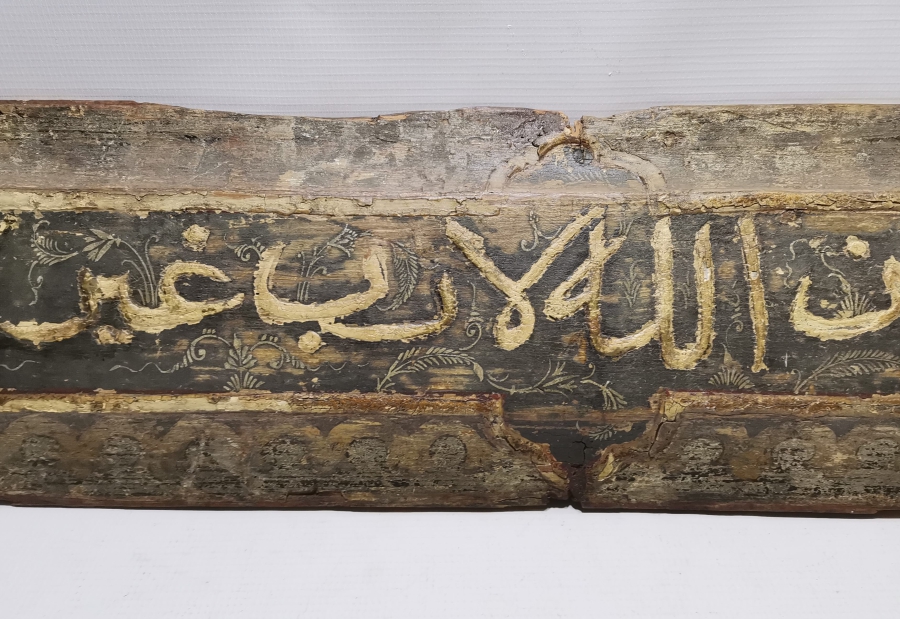 الله لا رب غير